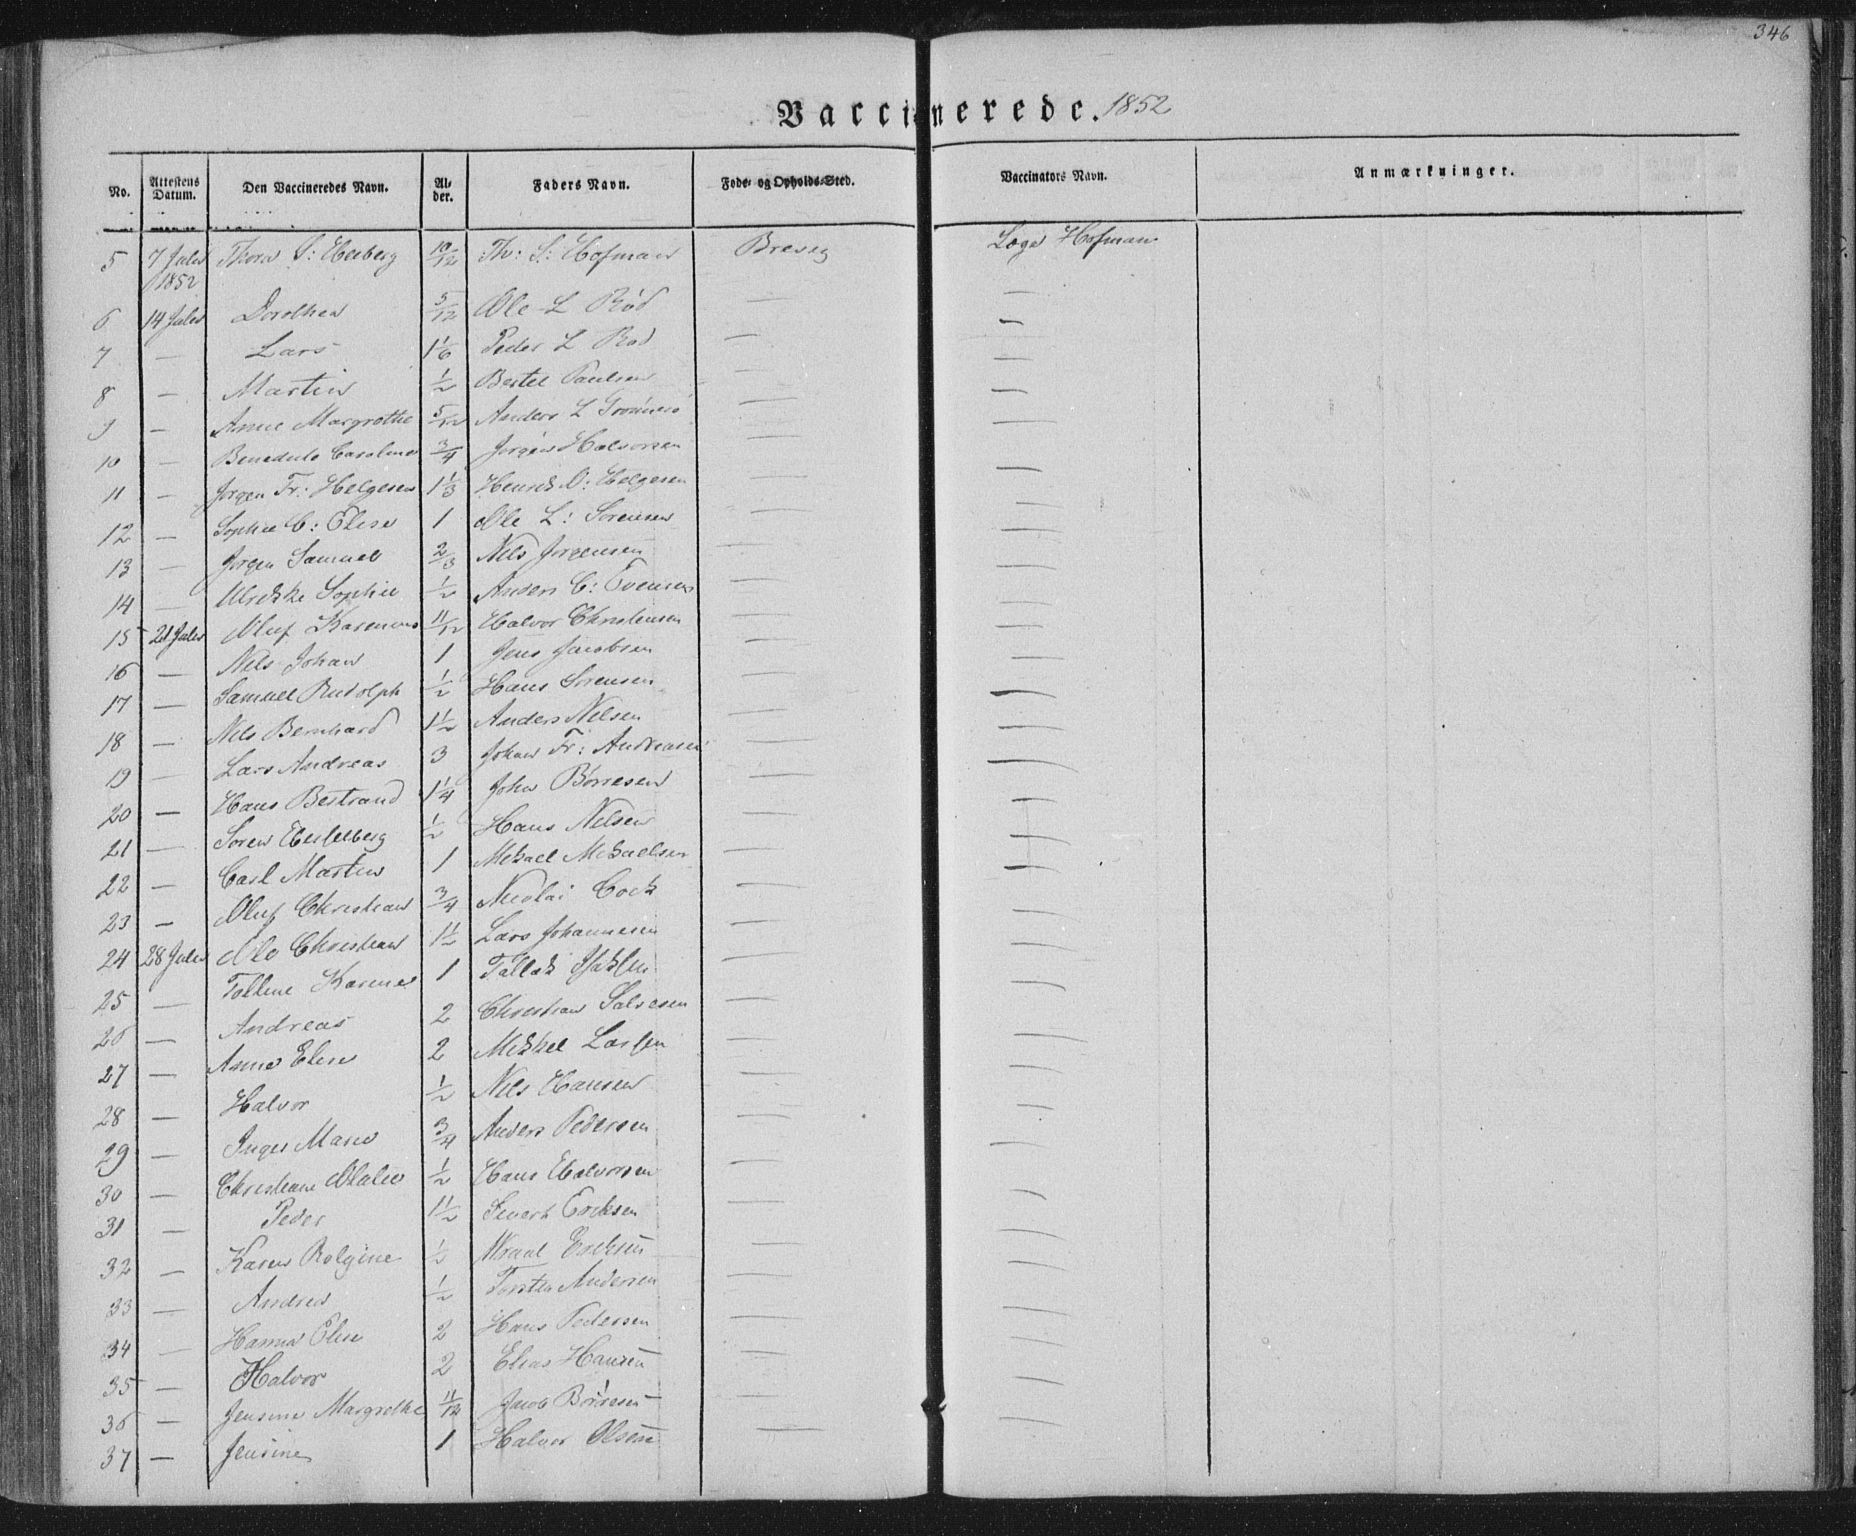 346
Vaccinerede. 1852
No. Attestens Datum. Den Vaccineredes Navn. Alder. Faders Navn. Føde- og Opholds-Sted. Vaccinators Navn. Anmærkninger.
5 7 Julii 1852 Thora S: 10/12 Th: S: Hofman Brevig Læge Hofman
6 14 Julii Dorothea 5/12 Ole L Röd — —
7 — Lars 1 1/6 Peder L Röd — —
8 — Martin 1/2 Bertel Paulsen — —
9 — Anne Margrethe 5/12 Anders L — —
10 — Caroline 3/4 Jörgen Halvorsen — —
11 — Jörgen Fr: Helgesen 1 1/3 Henrik O: Helgesen — —
12 — Sophie C: Elise 1 Ole L: Sörensen — —
13 — Jörgen Samuel 2/3 Nils Jörgensen — —
14 — Ulrikke Sophie 1/2 Anders C: Evensen — —
15 21 Julii Oluf 11/12 Halvor Christensen — —
16 — Nils Johan 1 Jens Jacobsen — —
17 — Samuel Rudolph 1/2 Hans Sörensen — —
18 — Nils Bernhard 1 1/2 Anders Nilsen — —
19 — Lars Andreas 3 Johan Fr: Andreasen — —
20 — Hans Bertrand 1 1/4 John Börresen — —
21 — Sören 1/2 Hans Nilsen — —
22 — Carl Martin 1 Mikael Mikaelsen — —
23 — Oluf Christian 3/4 Nicolai Cock — —
24 28 Julii Ole Christian 1 1/2 Lars Johannesen — —
25 — Karine 1 Tallak — —
26 — Andreas 2 Christian Salvesen — —
27 — Anne Elise 2 Mikkel Larsen — —
28 — Halvor 1/2 Nils Hansen — —
29 — Inger Marie 3/4 Anders Pedersen — —
30 — Christiane 1/2 Hans Halvorsen — —
31 — Peder 1 1/2 Sivert Ericksen — —
32 — Karen 1/2 Wraal Ericksen — —
33 — Andrea 1/2 Torsten Andersen — —
34 — Hanna Elise 2 Hans Pedersen — —
35 — Halvor 2 Elias Hansen — —
36 — Jensine Margrethe 11/12 Jacob Börresen — —
37 — Jensine 1 Halvor Olsen — —